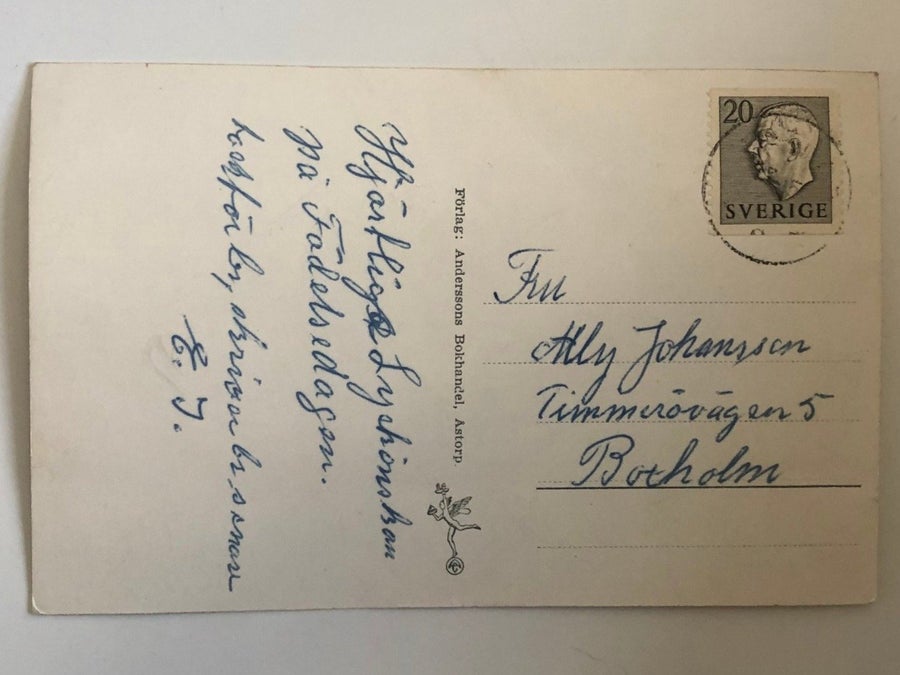 Hjärtliga Lyckönskan
på Födelsedagen.
Tack för br, skriver br senare
E. J.
Förlag: Anderssons Bokhandel, Åstorp.
20
SVERIGE
Fru
Ally Johansson
Timmerövägen 5
Boxholm